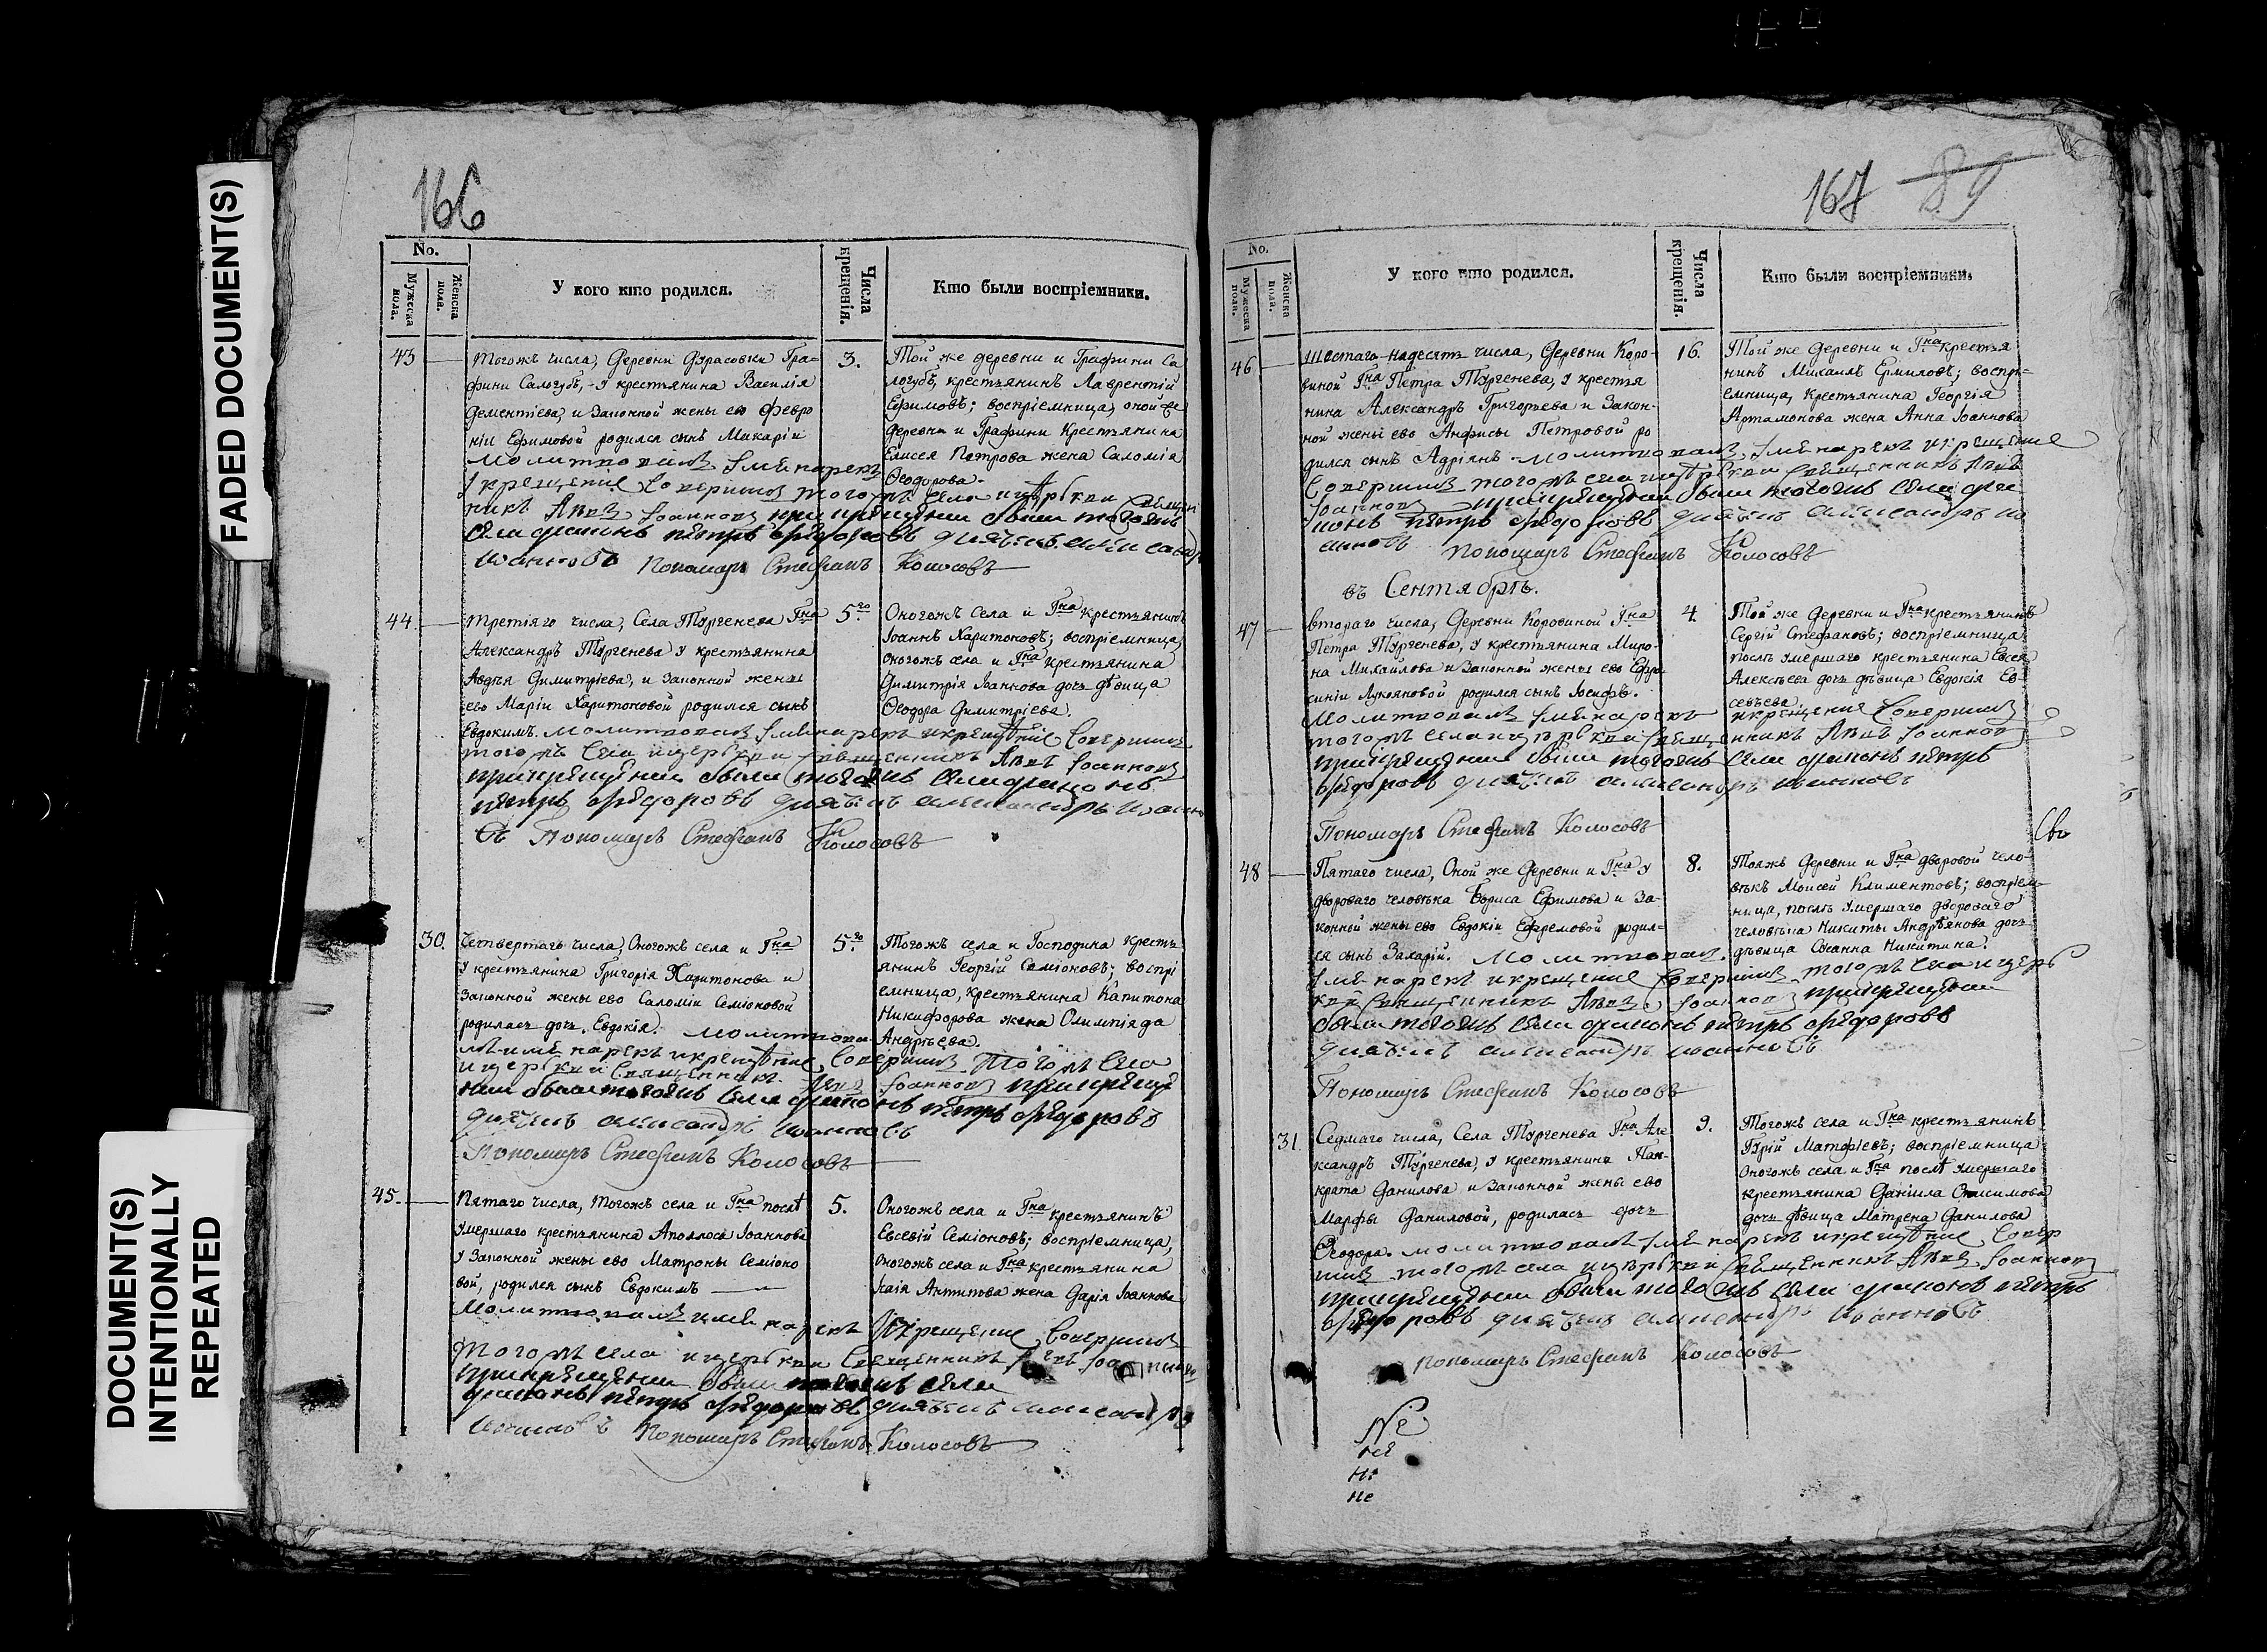 FADED DOCUMENT(S)
DOCUMENT(S)
INTENTIONALLY
REPEATED
166
No.
Мужеска пола.
Женска пола.
У кого кто родился.
Числа крещенія.
Кто были воспріемники.
43
Тогожъ числа, Деревни Дурасовки Гра=
фини Салогубъ, у крестьянина Василія
Дементіева, и Законной жены ево Февро
ніи Ефимовой родился сынъ Макарій
молитвовалъ имя нарекъ
и крещение Совершилъ тогожъ села церкви Священ
никъ Іоанновъ при крещении были тогожъ
села диаконъ петръ Федоровъ диячекъ александръ
иоанновъ Пономарь Стефанъ Колосовъ
3.
Той же деревни и Графини Са
логубъ, крестьянинъ Лаврентій
Ефимовъ; воспріемница, оной же
деревни и Графини Крестьянина
Елисея Петрова жена Саломія
Ѳеодорова.
44
Третіяго числа, Села Тургенева Гна
Александръ Тургенева у крестьянина
Авдѣя Димитріева, и Законной жены
его Маріи Харитоновой родился сынъ
Евдокимъ. молитвовалъ имя нарекъ и крещение Совершилъ
тогожъ села церкви священникъ Іоанновъ
при крещении были тогожъ села диаконъ
петръ Федоровъ диячекъ александръ иоанно
въ Пономарь Стефанъ Колосовъ
5го
Оногожъ Села и Гна крестьянинъ
Іоаннъ Харитоновъ; воспріемница,
оногожъ села и Гна крестьянина
Димитрія Іоаннова дочь дѣвица
Ѳеодора Димитріева.
30.
Четвертаго числа, Оногожъ села и Гна
у крестьянина Григорія Харитонова и
Законной жены ево Саломіи Семіоновой
родилась дочь Евдокія. молитвова
лъ имя нарекъ и крещение Совершилъ тогожъ Села
церкви Священникъ Іоанновъ при креще
нии были тогожъ села диаконъ петръ Федоровъ
диячекъ александръ иоанновъ
Пономарь Стефанъ Колосовъ
5го
Тогожъ села и Господина крестъ
янинъ Георгій Семіоновъ; воспрі
емница, крестьянина Капитона
Никифорова жена Олимпіяда
Андрѣева.
45.
Пятаго числа, тогожъ села и Гна послѣ
умершаго крестьянина Аполлоса Іоаннова
у Законной жены ево Матроны Семіоно
вой, родился сынъ Евдокимъ
молитвовалъ имя нарекъ и Крещение Совершилъ
тогожъ села церкви Священникъ
при крещении были тогожъ села
диаконъ петръ Федоровъ диячекъ александръ
иоанновъ Пономарь Стефанъ Колосовъ
5.
Оногожъ села и Гна крестьянинъ
Евсевій Семіоновъ; воспріемница,
Оногожъ села и Гна крестьянина
Исаія Антипьва жена Дарія Іоаннова
167 89
No.
Мужеска пола.
Женска пола.
У кого кто родился.
Числа крещенія.
Кто были воспріемники.
46
Шестаго-надесять числа, Деревни Коро-
виной Гна Петра Тургенева, у крестья
нина Александръ Григорьева и Закон-
ной жены ево Анфисы Петровой ро
дился сынъ Адріянъ. молитвовалъ, имя нарекъ и крещение
Совершилъ тогожъ села церкви священникъ
Іоанновъ при крещении были тогожъ села диа
конъ петръ Федоровъ диячекъ александръ ио
анновъ Пономарь Стефанъ Колосовъ
16.
Той же Деревни и Гна крестья
нинъ Михаилъ Ермиловъ; воспрі=
емница, крестьянина Георгія
Артамонова жена Анна Іоаннова
въ Сентябрѣ.
47
втораго числа, Деревни Коровиной Гна
Петра Тургенева, у крестьянина Миро-
на Михайлова и Законной жены ево Ефро
синіи Лукояновой родился сынъ Іосифъ.
молитвовалъ имя нарекъ и крещение Совершилъ
тогожъ села церкви священникъ Іоанновъ
при крещении были тогожъ села диаконъ петръ
Федоровъ диячекъ александръ иоанновъ
Пономарь Стефанъ Колосовъ
4.
Той же Деревни и Гна крестьянинъ
Сергій Стефановъ; воспріемница
послѣ умершаго крестьянина Евсея
Алексѣева дочь дѣвица Евдокія Ев-
севѣева
Сво
48
Пятаго числа, Оной же Деревни и Гна у
двороваго человѣка Бориса Ефимова и За-
конной жены ево Евдокіи Ефремовой родил=
ся сынъ Захарій. Молитвовалъ
имя нарекъ и крещение Совершилъ тогожъ села церк
ви священникъ Іоанновъ при крещении
были тогожъ села диаконъ петръ Федоровъ
диячекъ александръ иоанновъ
Пономарь Стефанъ Колосовъ
8.
Тояжъ Деревни и Гна дворовой чело-
вѣкъ Моисей Климентовъ; воспріем-
ница, послѣ умершаго двороваго
человѣка Никиты Андрѣянова дочь
дѣвица Сусанна Никитина.
31.
Седмаго числа, Села Тургенева Гна Але
ксандръ Тургенева, у крестьянина Пан-
крата Данилова и Законной жены ево
Марфы Даниловой, родилась дочь
Ѳеодора. молитвовалъ имя нарекъ и крещение, Совер
шилъ тогожъ села церкви священникъ Іоанновъ
при крещении были тогожъ села диаконъ петръ
Федоровъ диячекъ александръ Иоанновъ
Пономарь Стефанъ Колосовъ
9.
Тогожъ села и Гна крестьянинъ
Гурій Матфіевъ; воспріемница
Оногожъ села и Гна послѣ умершаго
крестьянина Даніила Онисимова
дочь дѣвица Матрена Данилова